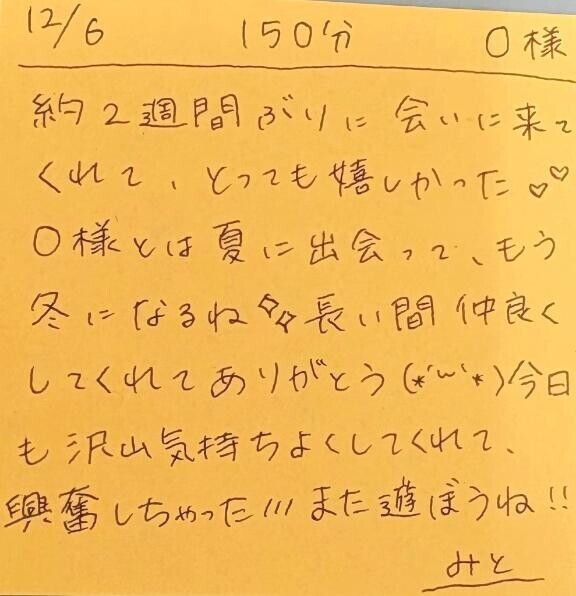 12/6 150分 O様
約2週間ぶりに会いに来て
くれて、とっても嬉しかった♡♡
O様とは夏に出会って、もう
冬になるね✧✧長い間仲良く
してくれてありがとう(*´ω`*)今日
も沢山気持ちよくしてくれて、
興奮しちゃった///また遊ぼうね!!
みと